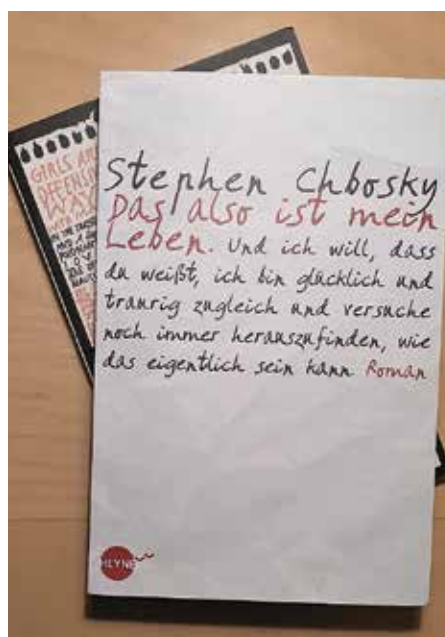 Stephen Chbosky
Das also ist mein
Leben. Und ich will, dass
du weißt, ich bin glücklich und
traurig zugleich und versuche
noch immer herauszufinden, wie
das eigentlich sein kann Roman
HEYNE
GIRLS AR
OFFENSI
WAY